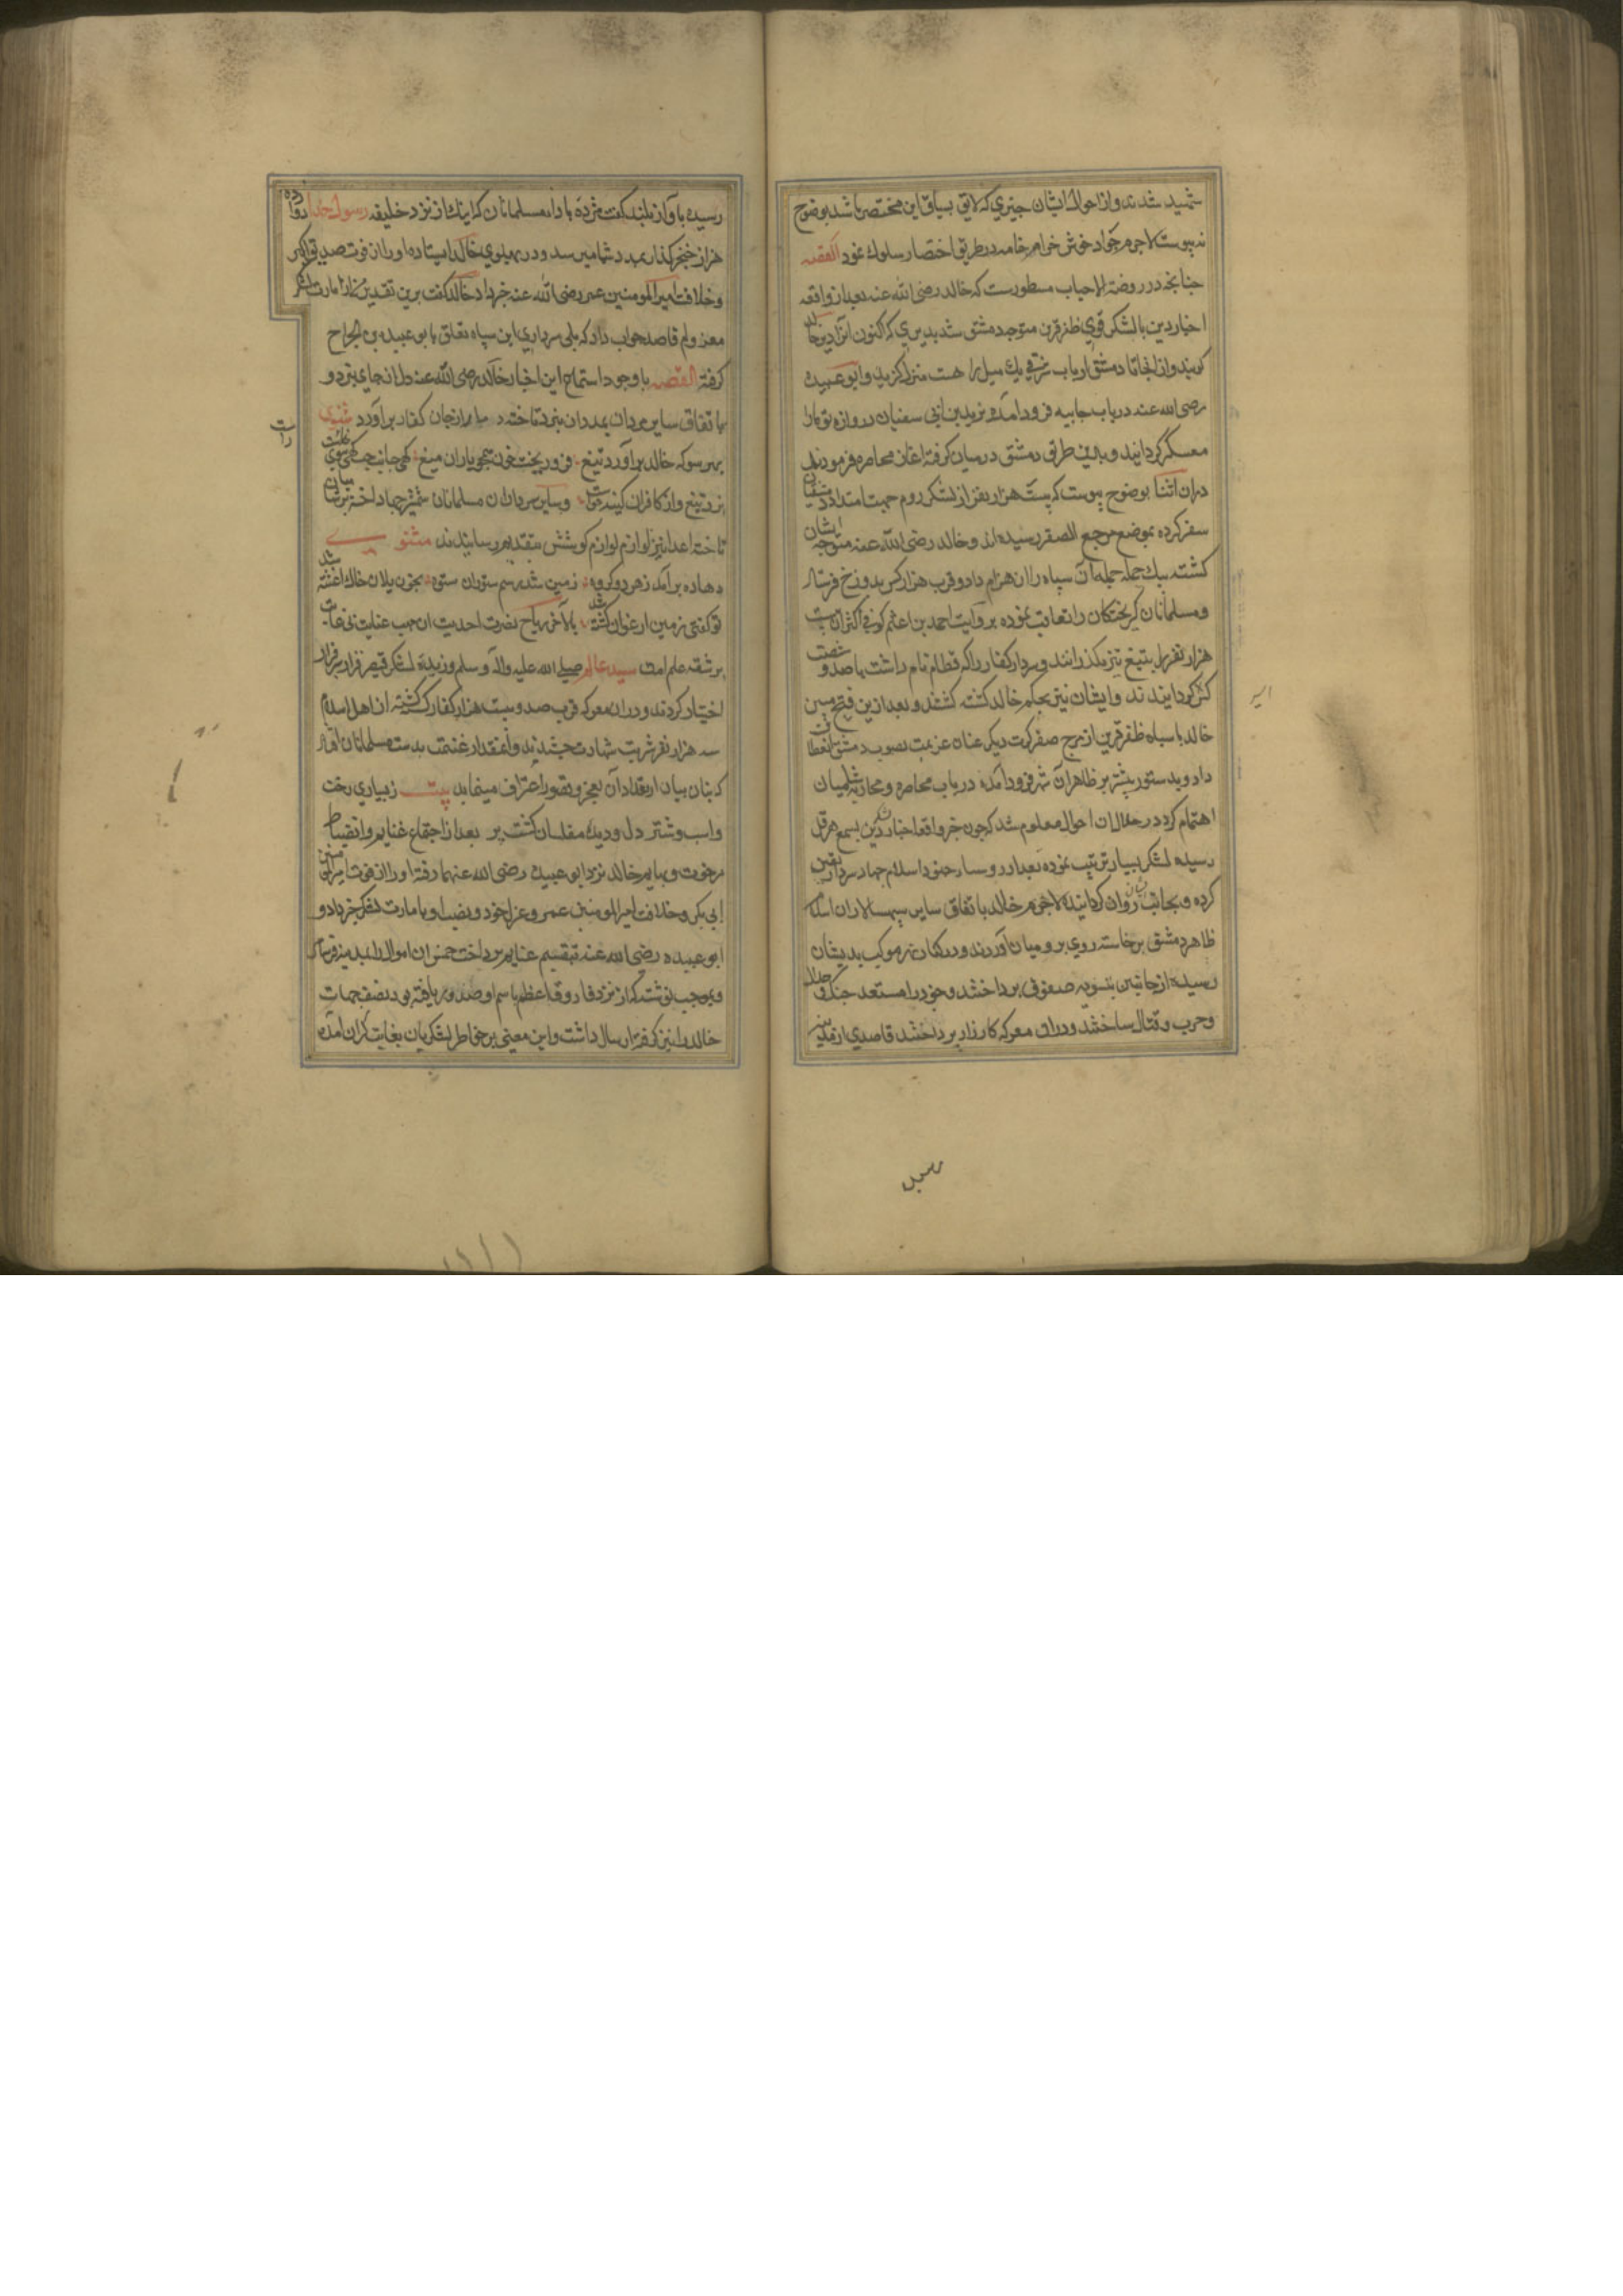 شهید شدند و از احوال ایشان چیزی که لایق بسیاق این مختصر باشد بوضوح
نه پیوست لاجرم جواد خوش خرام خامه در طریق اختصار سلوک نمود القصه
چنانچه در روضة الاحباب مسطورست که خالد رضی الله عنه بعد از واقعه
اجنادین با لشکر قوی ظفر قرین متوجه دمشق شد بدیری که اکنون آنرا دیر خالد
کویند و از انجا تا دمشق از باب شرقی یک میل راهست منزل کزید و ابو عبیده
رضی الله عنه در باب جابیه فرود آمده یزید بن ابی سفیان دروازه توما را
معسکر کردانید و بدین طریق دمشق در میان کرفته اغاز محاصره فرمودند
دران اثنا بوضوح پیوست که بیست هزار نفر از لشکر روم جهت امداد دمشقیان
سفر کرده بموضع مرجع الصقر رسیده اند و خالد رضی الله عنه متوجه ایشان
کشته بیک حمله جمله آن سپاه را انهزام داد و قرب هزار کس بدوزخ فرستاد
و مسلمانان کریختکان را تعاقب نموده بروایت احمد بن اعثم کوفی اکثر آن بیست
هزار نفر را بتیغ تیز بگذرانند و سردار کفار را که قطام نام داشت با صد و شصت
کس کردایندند و ایشان نیز بحکم خالد کشته کشتند و بعد ازین فتح مبین
اسیر
خالد با سپاه ظفر قرین از مرج صفر کرت دیکر عنان عزیمت بصوب دمشق انعطاف
داد و بدستور پیشتر بر ظاهر آن شهر فرود آمده در باب محاصره و محاربه شامیان
اهتمام کرد در خلال ان احوال معلوم شد که چون خبر واقعه اجنادین بسمع هرقل
رسیده لشکر بسیار ترتیب نموده
کرده و بجانب روان کردانیده لاجرم خالد باتفاق سایر سپهسالاران اسلام
ظاهر دمشق برخاسته روی برومیان آوردند و در کنار نهر موکب بدیشان
رسیده از جانبین بتسویه صفوف پرداختند و خود را مستعد جنک و جدال
و حرب و قتال ساختند و دران معرکه کارزار پرداختند قاصدی از مدینه
رسیده
رسیده باواز بلند کفت مژده باد ای مسلمانان که اینک از نزد خلیفه رسول خدا دوازده
هزار خنجر کذار بمدد شما میرسد و در پهلوی خالد ایستاده او را از فوت صدیق اکبر
و خلافت امیرالمومنین عمر رضی الله عنه خبر داد خالد کفت برین تقدیر من از امارت لشکر
معزولم قاصد جواب داد که بلی سرداری این سپاه تعلق بابو عبیده بن الجراح
کرفته القصه با وجود استماع این اخبار خالد رضی الله عنه دل از جای نبرد و
باتفاق سایر مردان بمیدان نبرد تاخته دمار از جان کفار برآورد مثنوی
راست
بهر سو که خالد برآورد تیغ فرو ریخت خون همچو باران میغ کهی جانب چپ کهی سوی راست
بزد تیغ و از کافران کینه خواست و سایر سرداران مسلمانان شمشیر جهاد اخته بر شامیان
تاخته اعدا نیز لوازم کوشش بتقدیم رسانیدند مثنوی
دهاده برآمد ز هر دو کروه زمین شد ز سم ستوران ستوه بخون یلان خاک اغشته شد
تو کفتی زمین ارغوان کشته شد بالاخر ریاح نصرت احدیت از مهب عنایت بی غایت
بر شقه علم امت سید عالم صلی الله علیه واله وسلم وزیده لشکر قیصر فرار بر قرار
اختیار کردند و دران معرکه قرب صد و بیست هزار کفار کشته کشته از اهل اسلام
سه هزار نفر شربت شهادت چشیدند و آنمقدار غنیمت بدست مسلمانان افتاد
که بنان بیان از تعداد آن بعجز و قصور اعتراف مینماید بیت ز بسیاری رخت
و اسب و شتر دل و دیده مفلسان کشت پر بعد از اجتماع غنایم و انضباط
خالد نزد ابو عبیده رضی الله عنهما رفته او را از فوت امیرالمومنین
ابی بکر و خلافت امیرالمومنین عمر و عزل خود و نصب او بامارت لشکر خبر داد و
ابو عبیده رضی الله عنه بتقسیم غنایم پرداخت خمس ان اموال را بمدینه فرستاد
و بموجب نوشته که از نزد فاروق اعظم باسم او صدور یافته بود نصف جهات
خالد را نیز کرفته ارسال داشت و این معنی بر خواطر لشکریان بغایت کران آمده